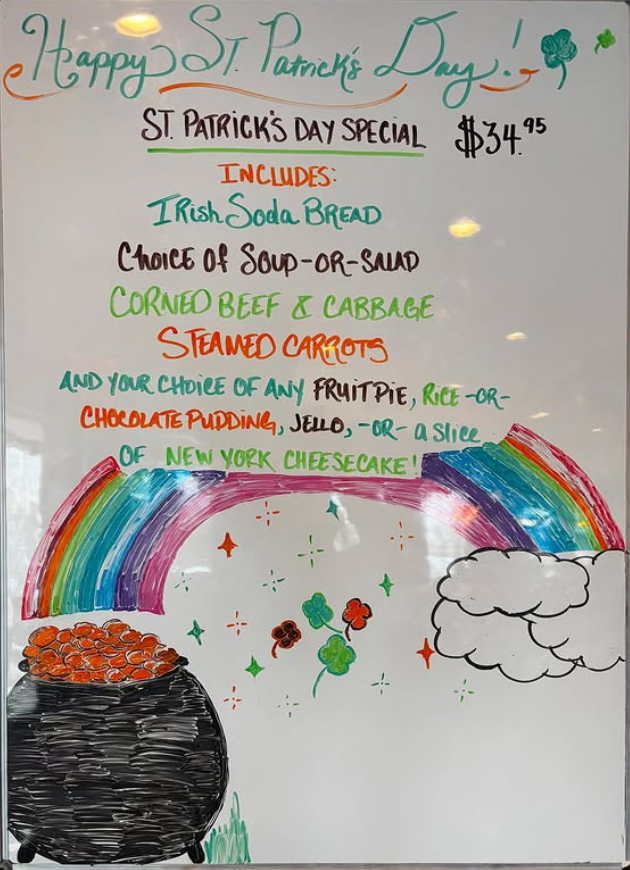 Happy St. Patrick's Day!
ST. PATRICK'S DAY SPECIAL $34.95
INCLUDES:
IRish Soda BREAD
CHOICE Of SOUP-OR-SALAD
CORNED BEEF & CABBAGE
STEAMED CARROTS
AND YOUR CHOICE OF ANY FRUIT PIE, RICE -OR-
CHOCOLATE PUDDING, JELLO, -OR- a Slice
OF NEW YORK CHEESECAKE!